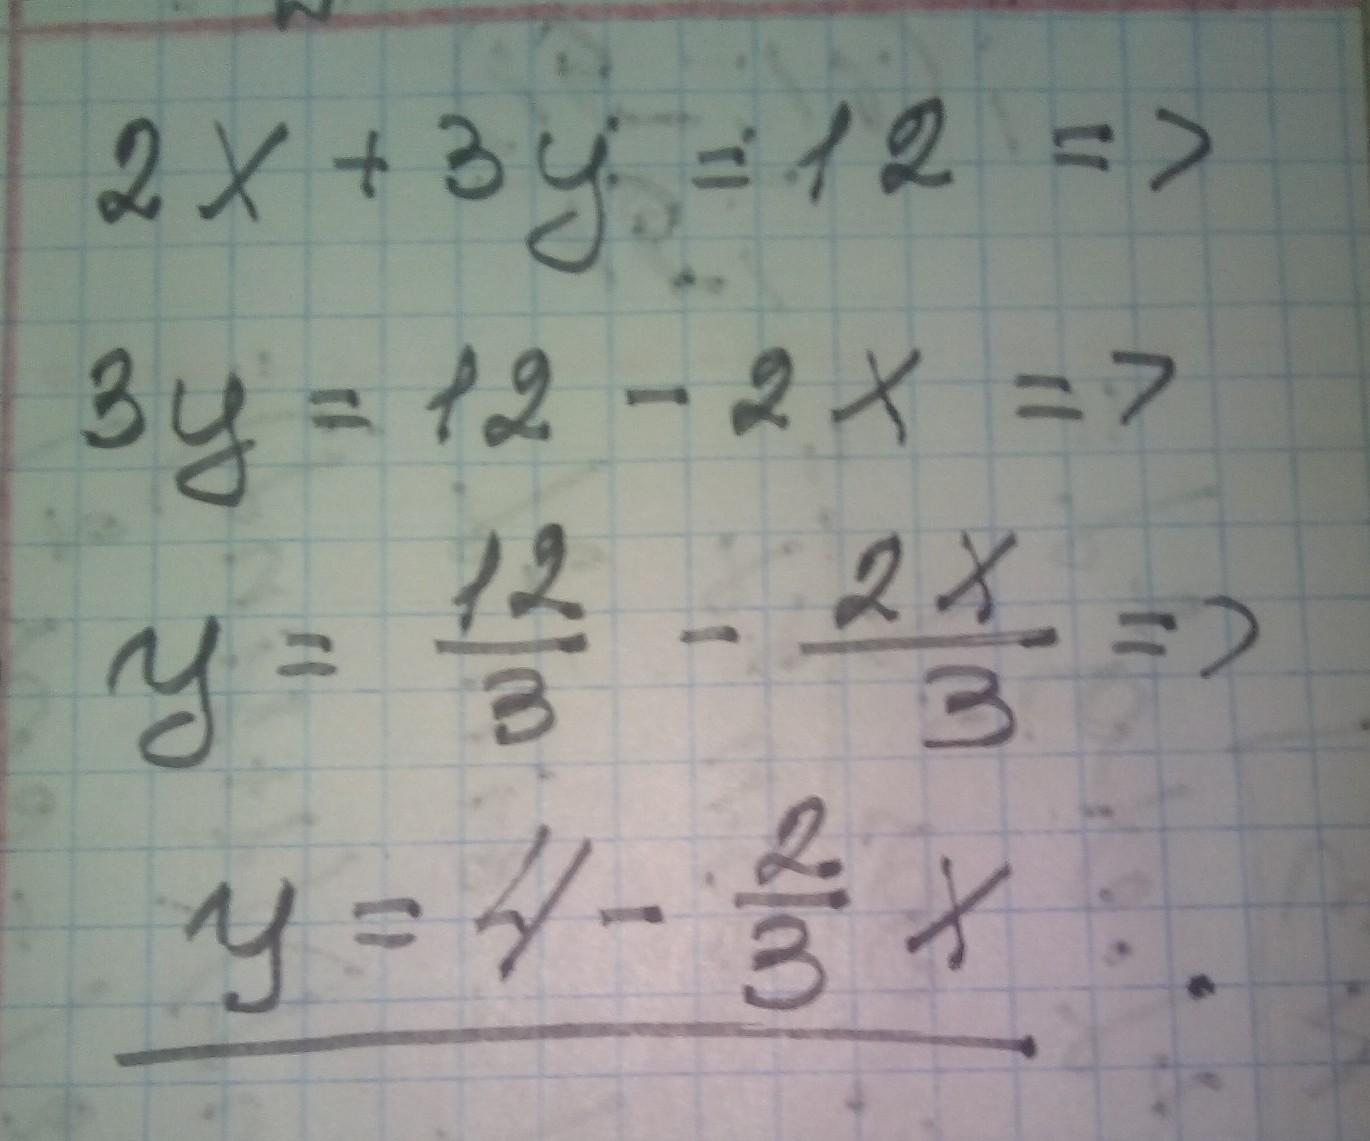 2x + 3y = 12 =>
3y = 12 - 2x =>
y = 12/3 - 2x/3 =>
y = 4 - 2/3 x